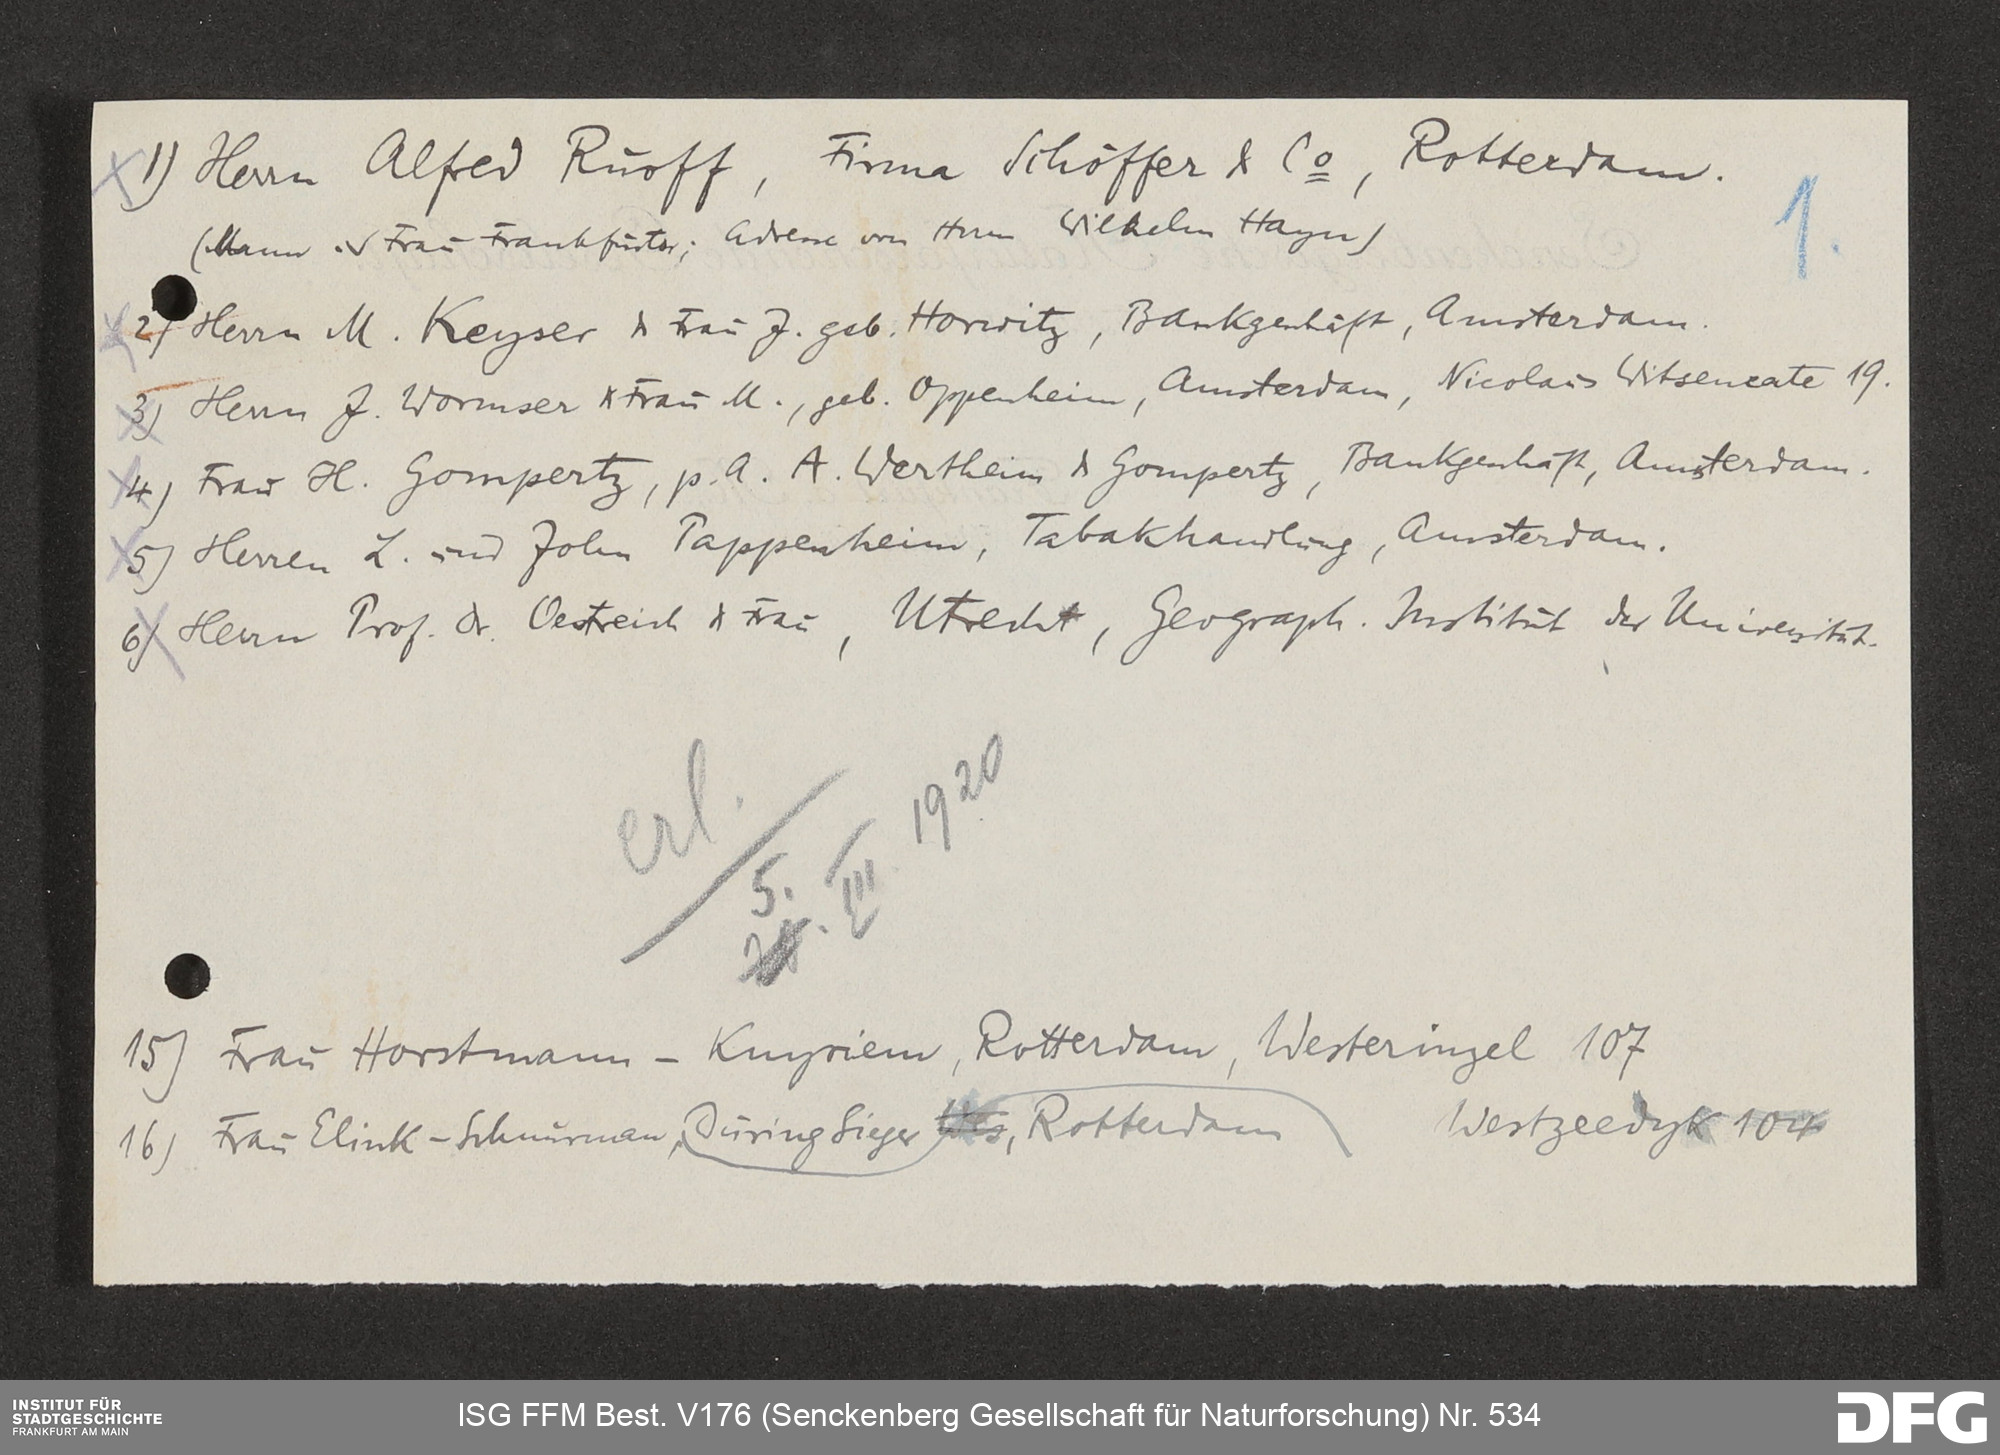 1) Herrn Alfred Ruoff, Firma Schöffer & Co, Rotterdam.
1.
(Mann u Frau Frankfurter; Adresse von Herrn Wilhelm Hayn)
2) Herrn M. Keyser & Frau J. geb. Horwitz, Bankgeschäft, Amsterdam.
3) Herrn J. Wormser & Frau M., geb. Oppenheim, Amsterdam, Nicolaus Witsencate 19.
4) Frau H. Gompertz, p. A. A. Wertheim & Gompertz, Bankgeschäft, Amsterdam.
5) Herren L. und John Pappenheim, Tabakhandlung, Amsterdam.
6) Herrn Prof. Dr. Oestreich & Frau, Utrecht, Geograph. Institut der Universität.
erl.
5. III. 1920
15) Frau Horstmann - Knyriem, Rotterdam, Westeringel 107
16) Frau Elink - Schuurman, During Sieger, Rotterdam Westzeedyk 104
INSTITUT FÜR
STADTGESCHICHTE
FRANKFURT AM MAIN
ISG FFM Best. V176 (Senckenberg Gesellschaft für Naturforschung) Nr. 534
DFG